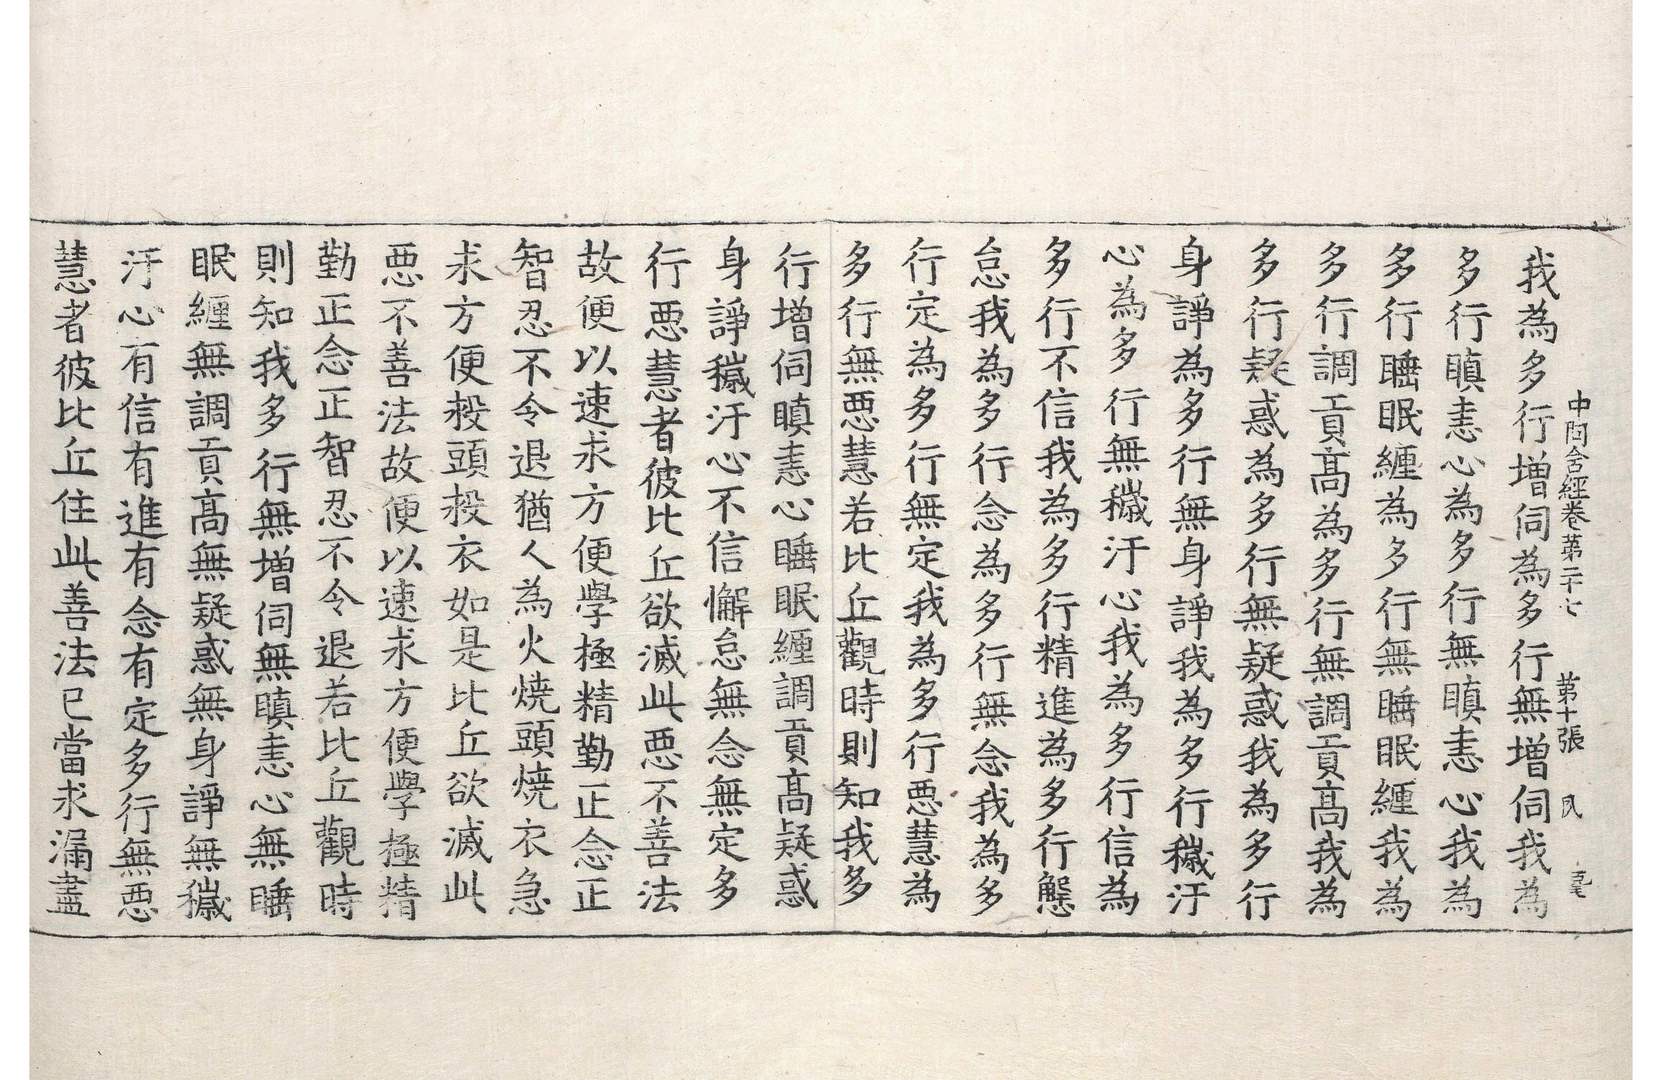 中阿含經卷苐二十七 苐十張
我為多行增伺為多行無增伺我為
多行瞋恚心為多行無瞋恚心我為
多行睡眠纏為多行無睡眠纏我為
多行調貢髙為多行無調貢髙我為
多行疑惑為多行無疑惑我為多行
身諍為多行無身諍我為多行穢汙
心為多行無穢汙心我為多行信為
多行不信我為多行精進為多行懈
怠我為多行念為多行無念我為多
行定為多行無定我為多行惡慧為
多行無惡慧若比丘觀時則知我多
行增伺瞋恚心睡眠纏調貢髙疑惑
身諍穢汙心不信懈怠無念無定多
行惡慧者彼比丘欲滅此惡不善法
故便以速求方便學極精勤正念正
智忍不令退猶人為火燒頭燒衣急
求方便救頭救衣如是比丘欲滅此
惡不善法故便以速求方便學極精
勤正念正智忍不令退若比丘觀時
則知我多行無增伺無瞋恚心無睡
眠纏無調貢髙無疑惑無身諍無穢
汙心有信有進有念有定多行無惡
慧者彼比丘住此善法已當求漏盡